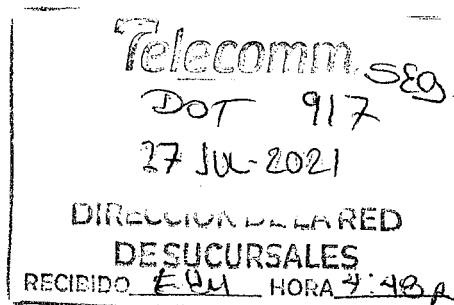 Telecomm. SEG.
DOT 917
27 JUL-2021
DIRECCION DE LA RED
DE SUCURSALES
RECIBIDO HORA 4:48